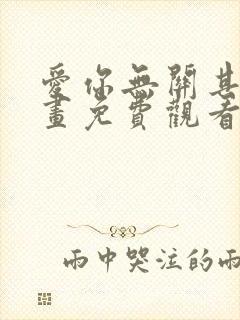 愛你無關其
畫免費觀看
雨中哭泣的雨